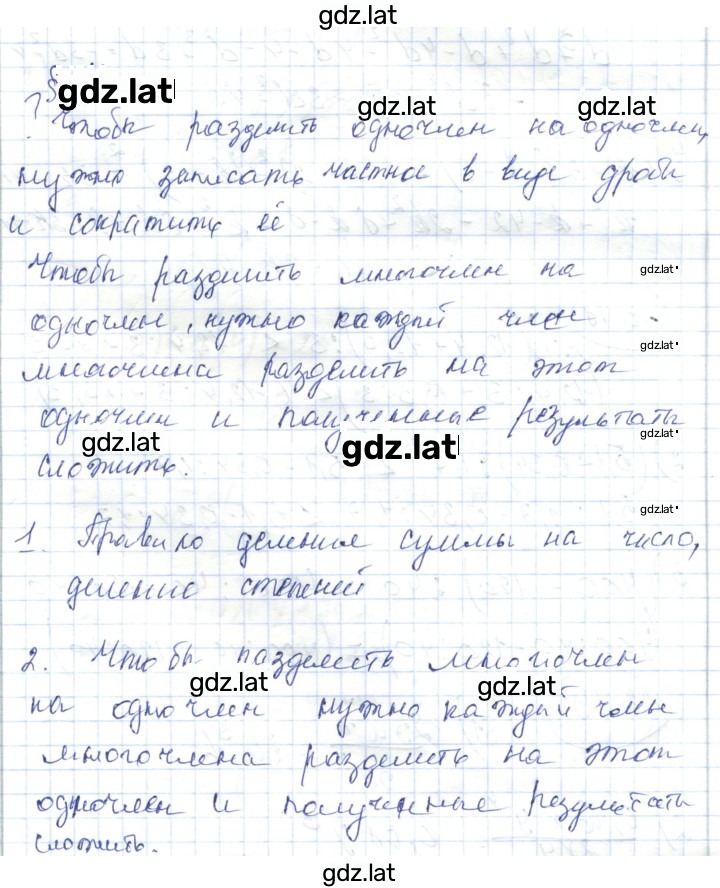 gdz.lat
§
gdz.lat
? Чтобы разделить одночлен на одночлен,
gdz.lat gdz.lat
нужно записать частное в виде дроби
и сократить её
Чтобы разделить многочлен на
gdz.lat
одночлен, нужно каждый член
gdz.lat
многочлена разделить на этот
одночлен и полученные результаты
gdz.lat gdz.lat gdz.lat
сложить.
gdz.lat
1. Правило деления суммы на число,
деление степеней
2. Чтобы разделить многочлен
gdz.lat gdz.lat
на одночлен нужно каждый член
многочлена разделить на этот
одночлен и полученные результаты
сложить.
gdz.lat